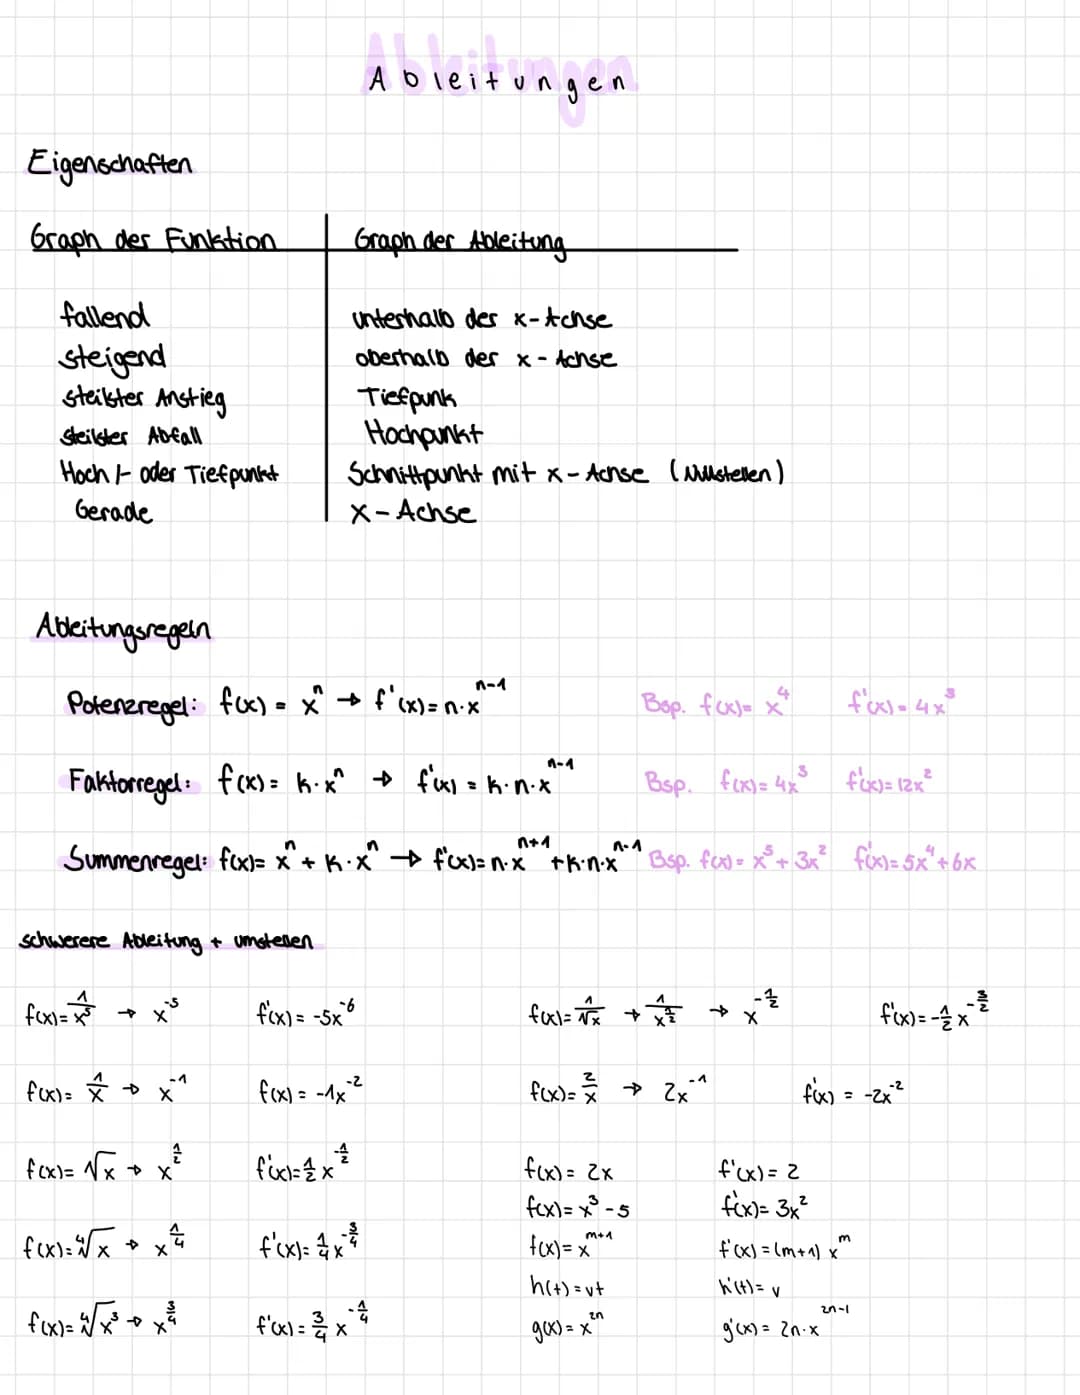 Ableitungen
Eigenschaften
Graph der Funktion Graph der Ableitung
fallend unterhalb der x-Achse
steigend oberhalb der x-Achse
steilster Anstieg Tiefpunk
steilster Abfall Hochpunkt
Hoch/- oder Tiefpunkt Schnittpunkt mit x-Achse (Nullstellen)
Gerade x-Achse
Ableitungsregeln
Potenzregel: f(x) = x^n → f'(x) = n·x^(n-1) Bsp. f(x) = x^4 f'(x) = 4x^3
Faktorregel: f(x) = k·x^n → f'(x) = k·n·x^(n-1) Bsp. f(x) = 4x^3 f'(x) = 12x^2
Summenregel: f(x) = x^n + k·x^n → f'(x) = n·x^(n+1) + k·n·x^(n-1) Bsp. f(x) = x^5 + 3x^2 f'(x) = 5x^4 + 6x
schwerere Ableitung + umstellen
f(x) = 1/x^5 → x^-5 f'(x) = -5x^-6 f(x) = 1/√x → 1/x^(1/2) → x^(-1/2) f'(x) = -1/2 x^(-3/2)
f(x) = 1/x → x^-1 f(x) = -1x^-2 f(x) = 2/x → 2x^-1 f'(x) = -2x^-2
f(x) = √x → x^(1/2) f'(x) = 1/2 x^(-1/2) f(x) = 2x f'(x) = 2
f(x) = x^3 - 5 f'(x) = 3x^2
f(x) = ⁴√x → x^(1/4) f'(x) = 1/4 x^(-3/4) f(x) = x^(m+1) f'(x) = (m+1) x^m
h(t) = vt h'(t) = v
f(x) = ⁴√x^3 → x^(3/4) f'(x) = 3/4 x^(-1/4) g(x) = x^(2n) g'(x) = 2n·x^(2n-1)